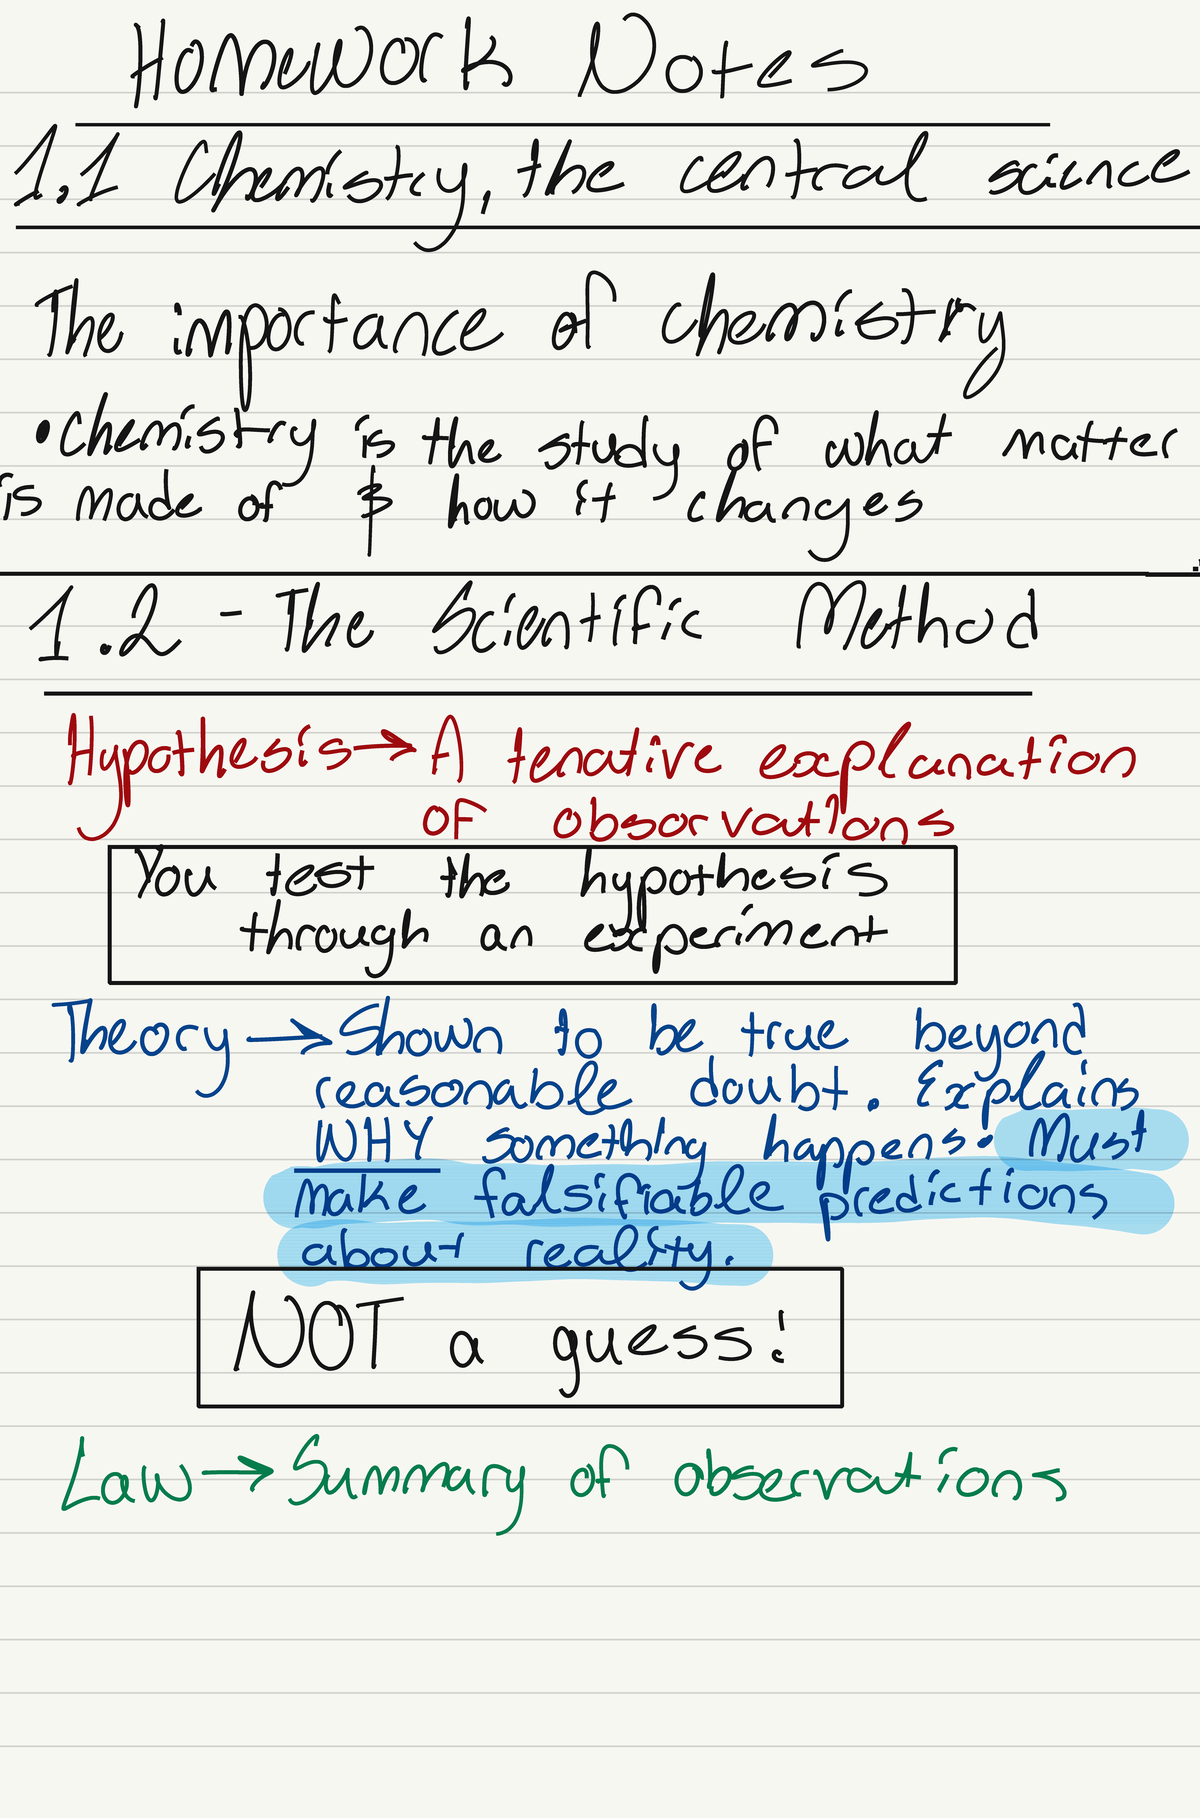 Homework Notes
1.1 Chemistry, the central science
The importance of chemistry
• Chemistry is the study of what matter
is made of & how it changes
1.2 - The Scientific Method
Hypothesis → A tenative explanation
of observations
You test the hypothesis
through an experiment
Theory → Shown to be true beyond
reasonable doubt. Explains
WHY something happens. Must
make falsifiable predictions
about reality.
NOT a guess!
Law → Summary of observations